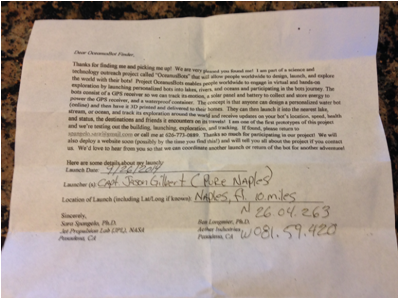 Dear Oceanodbots Finder,
Thanks for finding me and picking me up! We are very pleased you found me! I am part of a science and
technology outreach project called "Oceanodbots" that will allow people worldwide to design, launch, and explore
the world with their bots! Project Oceanodbots enables people worldwide to engage in virtual and hands-on
exploration by launching personalized bots into lakes, rivers, and oceans and participating in the bots journey. The
bots consist of a GPS receiver so we can track its motion, a solar panel and battery to collect and store energy to
power the GPS receiver, and a waterproof container. The concept is that anyone can design a personalized water bot
(online) and then have it 3D printed and delivered to their homes. They can then launch it into the nearest lake,
stream, or ocean, and track its exploration around the world and receive updates on your bot's location, speed, health
and status, the destinations and friends it encounters on its travels! I am one of the first prototypes of this project
and we're testing out the building, launching, exploration, and tracking. If found, please return to
or call me at 626-773-0889. Thanks so much for participating in our project! We will
also deploy a website soon (possibly by the time you find this!) and will tell you all about the project if you contact
us. We'd love to hear from you so that we can coordinate another launch or return of the bot for another adventure!
Here are some details about my launch:
Launch Date: 9/26/2014
Launcher (s): Capt Jason Gilbert (Pure Naples)
Location of Launch (including Lat/Long if known): Naples, fl. 10 miles
N 26.04.263
W 081.59.420
Sincerely,
Sara Spangelo, Ph.D.
Jet Propulsion Lab (JPL), NASA
Pasadena, CA
Ben Longmier, Ph.D.
Aether Industries
Pasadena, CA